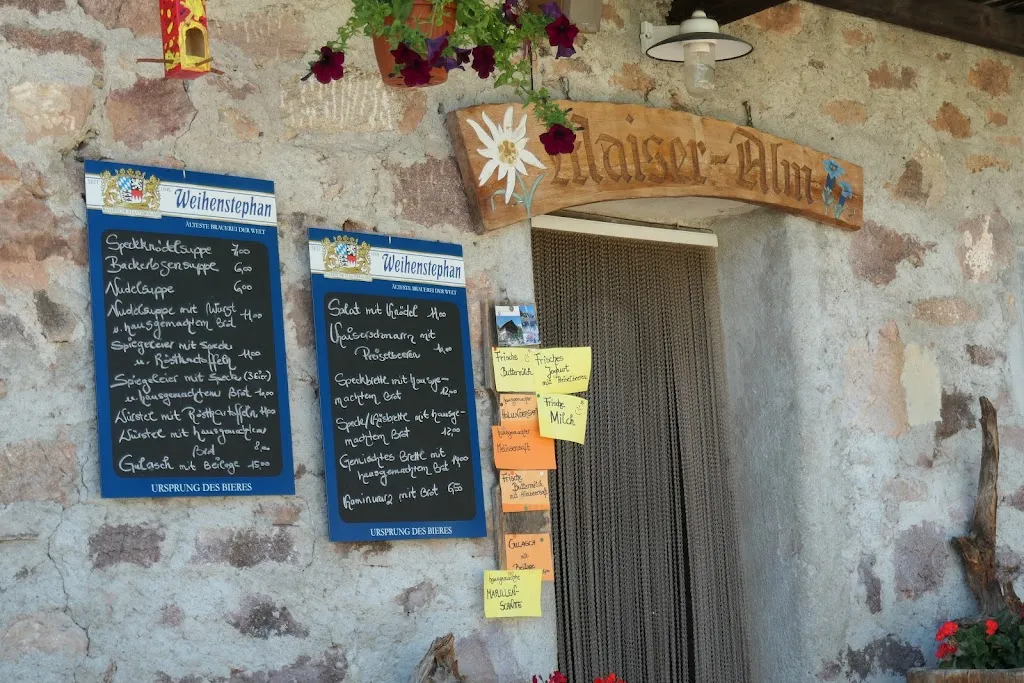 Maiser-Alm
Weihenstephan
ÄLTESTE BRAUEREI DER WELT
Speckknödelsuppe 7,00
Backerbsensuppe 6,00
Nudelsuppe 6,00
Nudelsuppe mit Wurst
u. hausgemachtem Brot
Spiegeleier mit Speck
u. Röstkartoffeln 11,00
Spiegeleier mit Speck (3 Eier)
u. hausgemachtem Brot
Würstel mit Röstkartoffeln
Würstel mit hausgemachtem
Brot
Gulasch mit Beilage 15,00
URSPRUNG DES BIERES
Weihenstephan
ÄLTESTE BRAUEREI DER WELT
Salat mit Knödel
Kaiserschmarrn mit
Preiselbeeren
Speckbrettl mit hausge-
machtem Brot 12,00
Speck/Käsbrettl mit hausge-
machtem Brot 12,00
Gemischtes Brettl mit
hausgemachtem Brot
Kaminwurz mit Brot 6,50
URSPRUNG DES BIERES
Frische
Buttermilch
Frisches
Joghurt
mit Preiselbeeren
Frische
Milch
hausgemachter
hausgemachter
Melissensaft
Frische
Buttermilch
Gulasch
mit
Beilage
hausgemachte
MARILLEN-
SCHNITTE